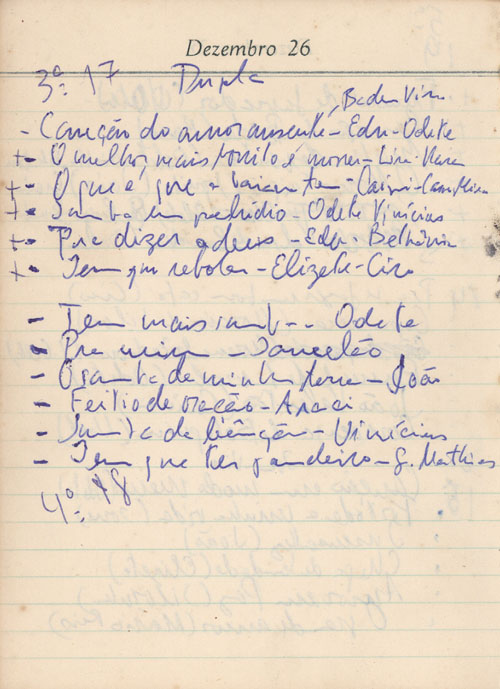 Dezembro 26
3º: 17 Dupla
, Baden Vini
- Canção do amor ausente - Edu - Odete
+ - O melhor, mais bonito é morrer - Lira - Nara
+ - O que é que a baiana tem - Caimi - Carm Mira
+ - Samba em prelúdio - Odete Vinícius
+ - Pra dizer adeus - Edu - Bethânia
+ - Tem que rebolar - Elizete - Ciro
- Tem mais samba - Odete
- Pra mim -
- O samba de minha terra - João
- Feitio de oração - Araci
- Samba da bênção - Vinícius
- Tem que ter pandeiro - G. Mathias
4º: 18